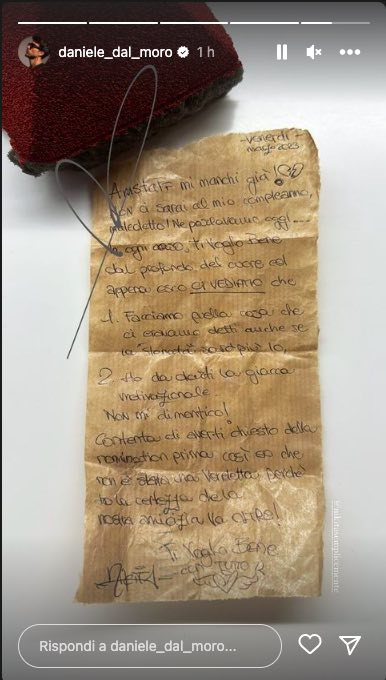 daniele_dal_moro 1 h
Venerdì
marzo 2023
mi manchi già!
ci sarai al mio compleanno,
maledetto! Ne parlavamo oggi....
In ogni caso, Ti Voglio Bene
dal profondo del cuore ed
appena esco CI VEDIAMO che
1. Facciamo quella cosa che
ci eravamo detti anche se
la
2. Ho da darti la giacca
motivazionale.
Non mi dimentico!
Contenta di averti chiesto della
nomination prima così so che
non è stata una vendetta perché
ho la certezza che la
nostra amicizia va OLTRE!
Ti Voglio Bene
Rispondi a daniele_dal_moro...